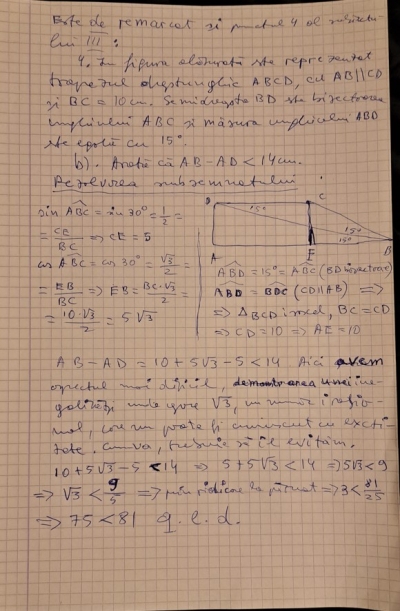 Este de remarcat și punctul 4 al subiectu-
lui III:
4. În figura alăturată este reprezentat
trapezul dreptunghic ABCD, cu AB||CD
și BC = 10 cm. Semidreapta BD este bisectoarea
unghiului ABC și măsura unghiului ABD
este egală cu 15°.
b). Arată că AB-AD < 14 cm.
Rezolvarea subsemnatului
sin ABC = sin 30° = 1/2 =
= CE/BC => CE = 5
cos ABC = cos 30° = √3/2 =
= EB/BC => EB = BC·√3/2 =
= 10·√3/2 = 5√3
D C
15°
15°
15°
A E B
ABD = 15° = DBC (BD bisectoare)
ABD = BDC (CD||AB) =>
=> ΔBCD isoscel, BC = CD
=> CD = 10 => AE = 10
AB-AD = 10 + 5√3 - 5 < 14 Aici avem
aspectul mai dificil, demonstrarea unei ine-
galități unde apare √3, un număr irațio-
nal, care nu poate fi cunoscut cu exacti-
tate. Cumva, trebuie să îl evităm.
10 + 5√3 - 5 < 14 => 5 + 5√3 < 14 => 5√3 < 9
=> √3 < 9/5 => prin ridicare la pătrat => 3 < 81/25
=> 75 < 81 q.e.d.